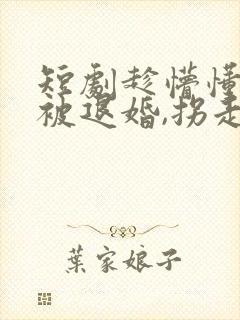 短劇趁懵懂
被退婚,拐走
葉家娘子